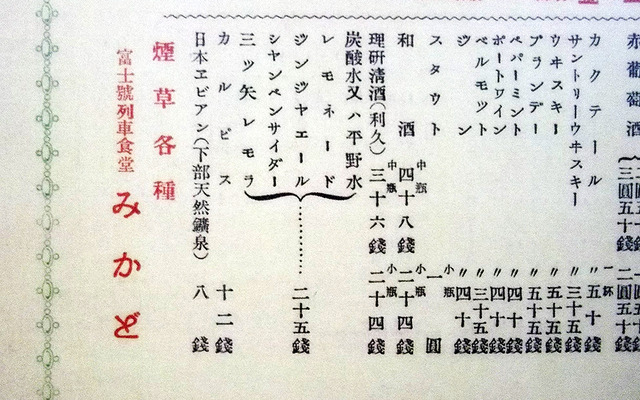 赤葡萄酒 三圓五十錢 二圓五十錢
カクテール 一杯 〃五十錢
サントリーウヰスキー 〃三十五錢
ウヰスキー 〃五十五錢
ブランデー 〃五十五錢
ペパーミント 〃四十錢
ポートワイン 〃四十錢
ベルモット 〃三十五錢
ジン 〃四十錢
スタウト 小瓶 一圓
和酒 中瓶 四十八錢 小瓶 二十四錢
理研清酒(利久) 中瓶 三十六錢 小瓶 二十四錢
炭酸水又ハ平野水
レモネード
ジンジャエール 二十五錢
シャンペンサイダー
三ツ矢レモラ
カルピス 十二錢
日本エビアン(下部天然鑛泉) 八錢
煙草各種
富士號列車食堂 みかど